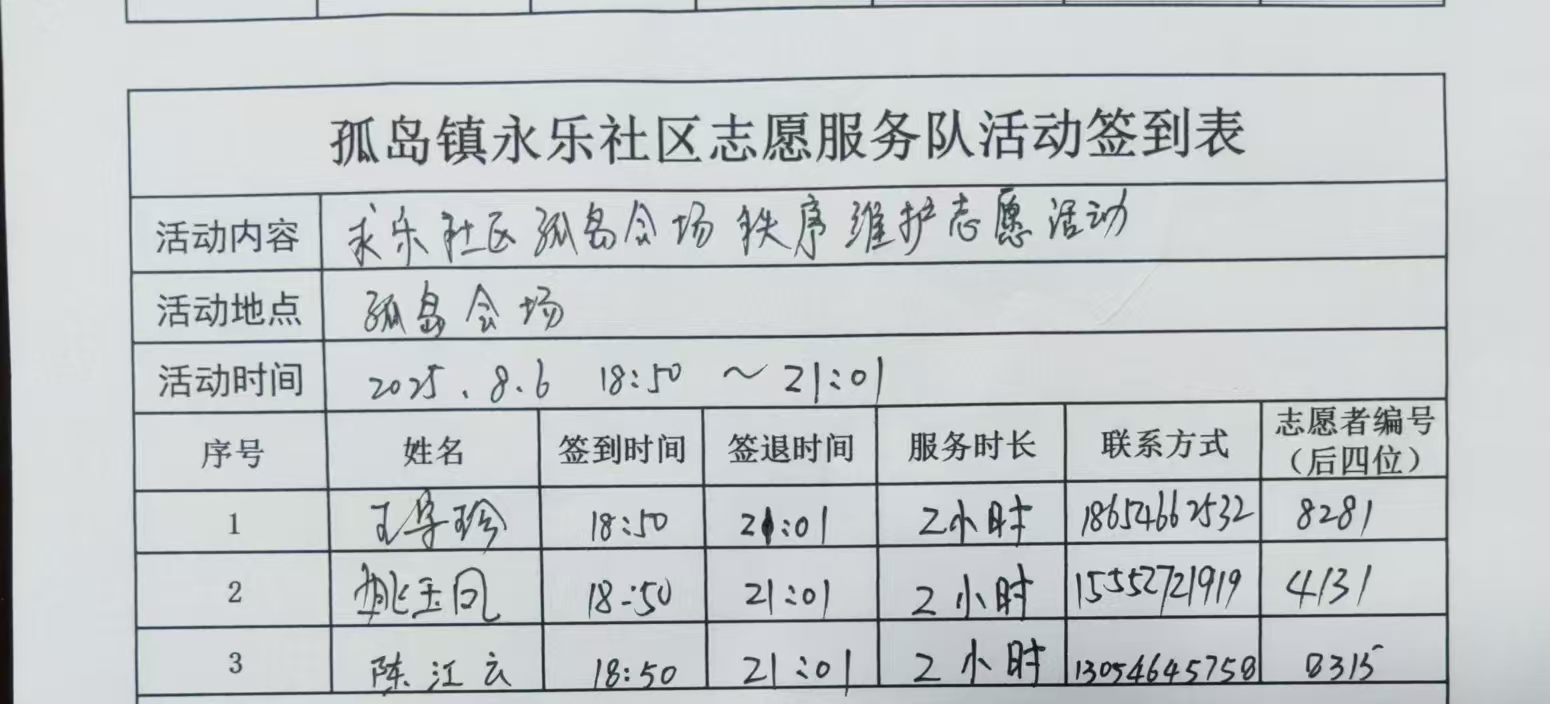 孤岛镇永乐社区志愿服务队活动签到表
活动内容 永乐社区孤岛会场秩序维护志愿活动
活动地点 孤岛会场
活动时间 2025.8.6 18:50 ~ 21:01
序号 姓名 签到时间 签退时间 服务时长 联系方式 志愿者编号
（后四位）
1 18:50 21:01 2小时 18654662532 8281
2 姚玉凤 18:50 21:01 2小时 15552721919 4131
3 陈江云 18:50 21:01 2小时 13054645758 8315